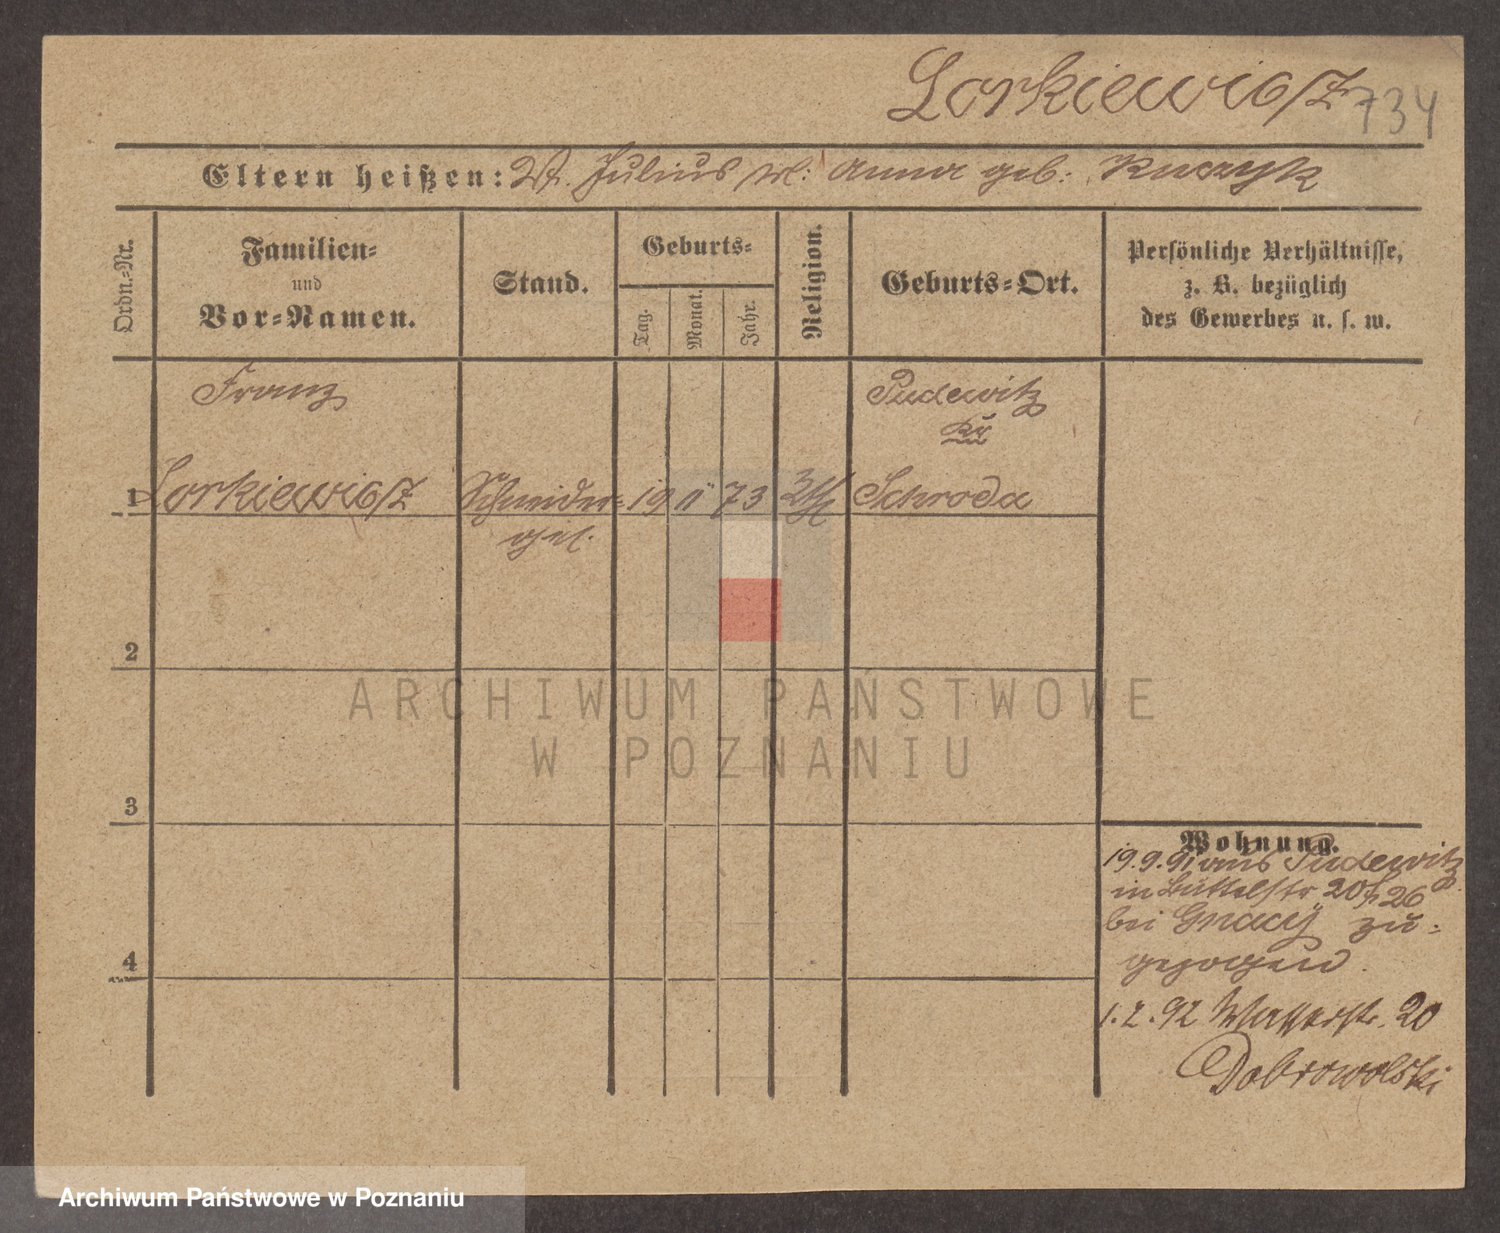 Lorkiewicz 734
Eltern heißen: W. Julius Anna geb: Kuczyk
Ordn.-Nr.
Familien-
und
Vor-Namen.
Stand.
Geburts-
Tag.
Monat.
Jahr.
Religion.
Geburts-Ort.
Persönliche Verhältnisse,
z. B. bezüglich
des Gewerbes u. s. w.
Franz
Pudewitz
Kr
1 Lorkiewicz Schneider- 19 11 73 Schroda
gel.
2
ARCHIWUM PAŃSTWOWE
W POZNANIU
3
Wohnung.
19.9.91 aus Pudewitz
in Büttelstr 20
bei Gnacy zu-
gezogen.
4
1.2.92 Wasserstr. 20
Dobrowolski
Archiwum Państwowe w Poznaniu